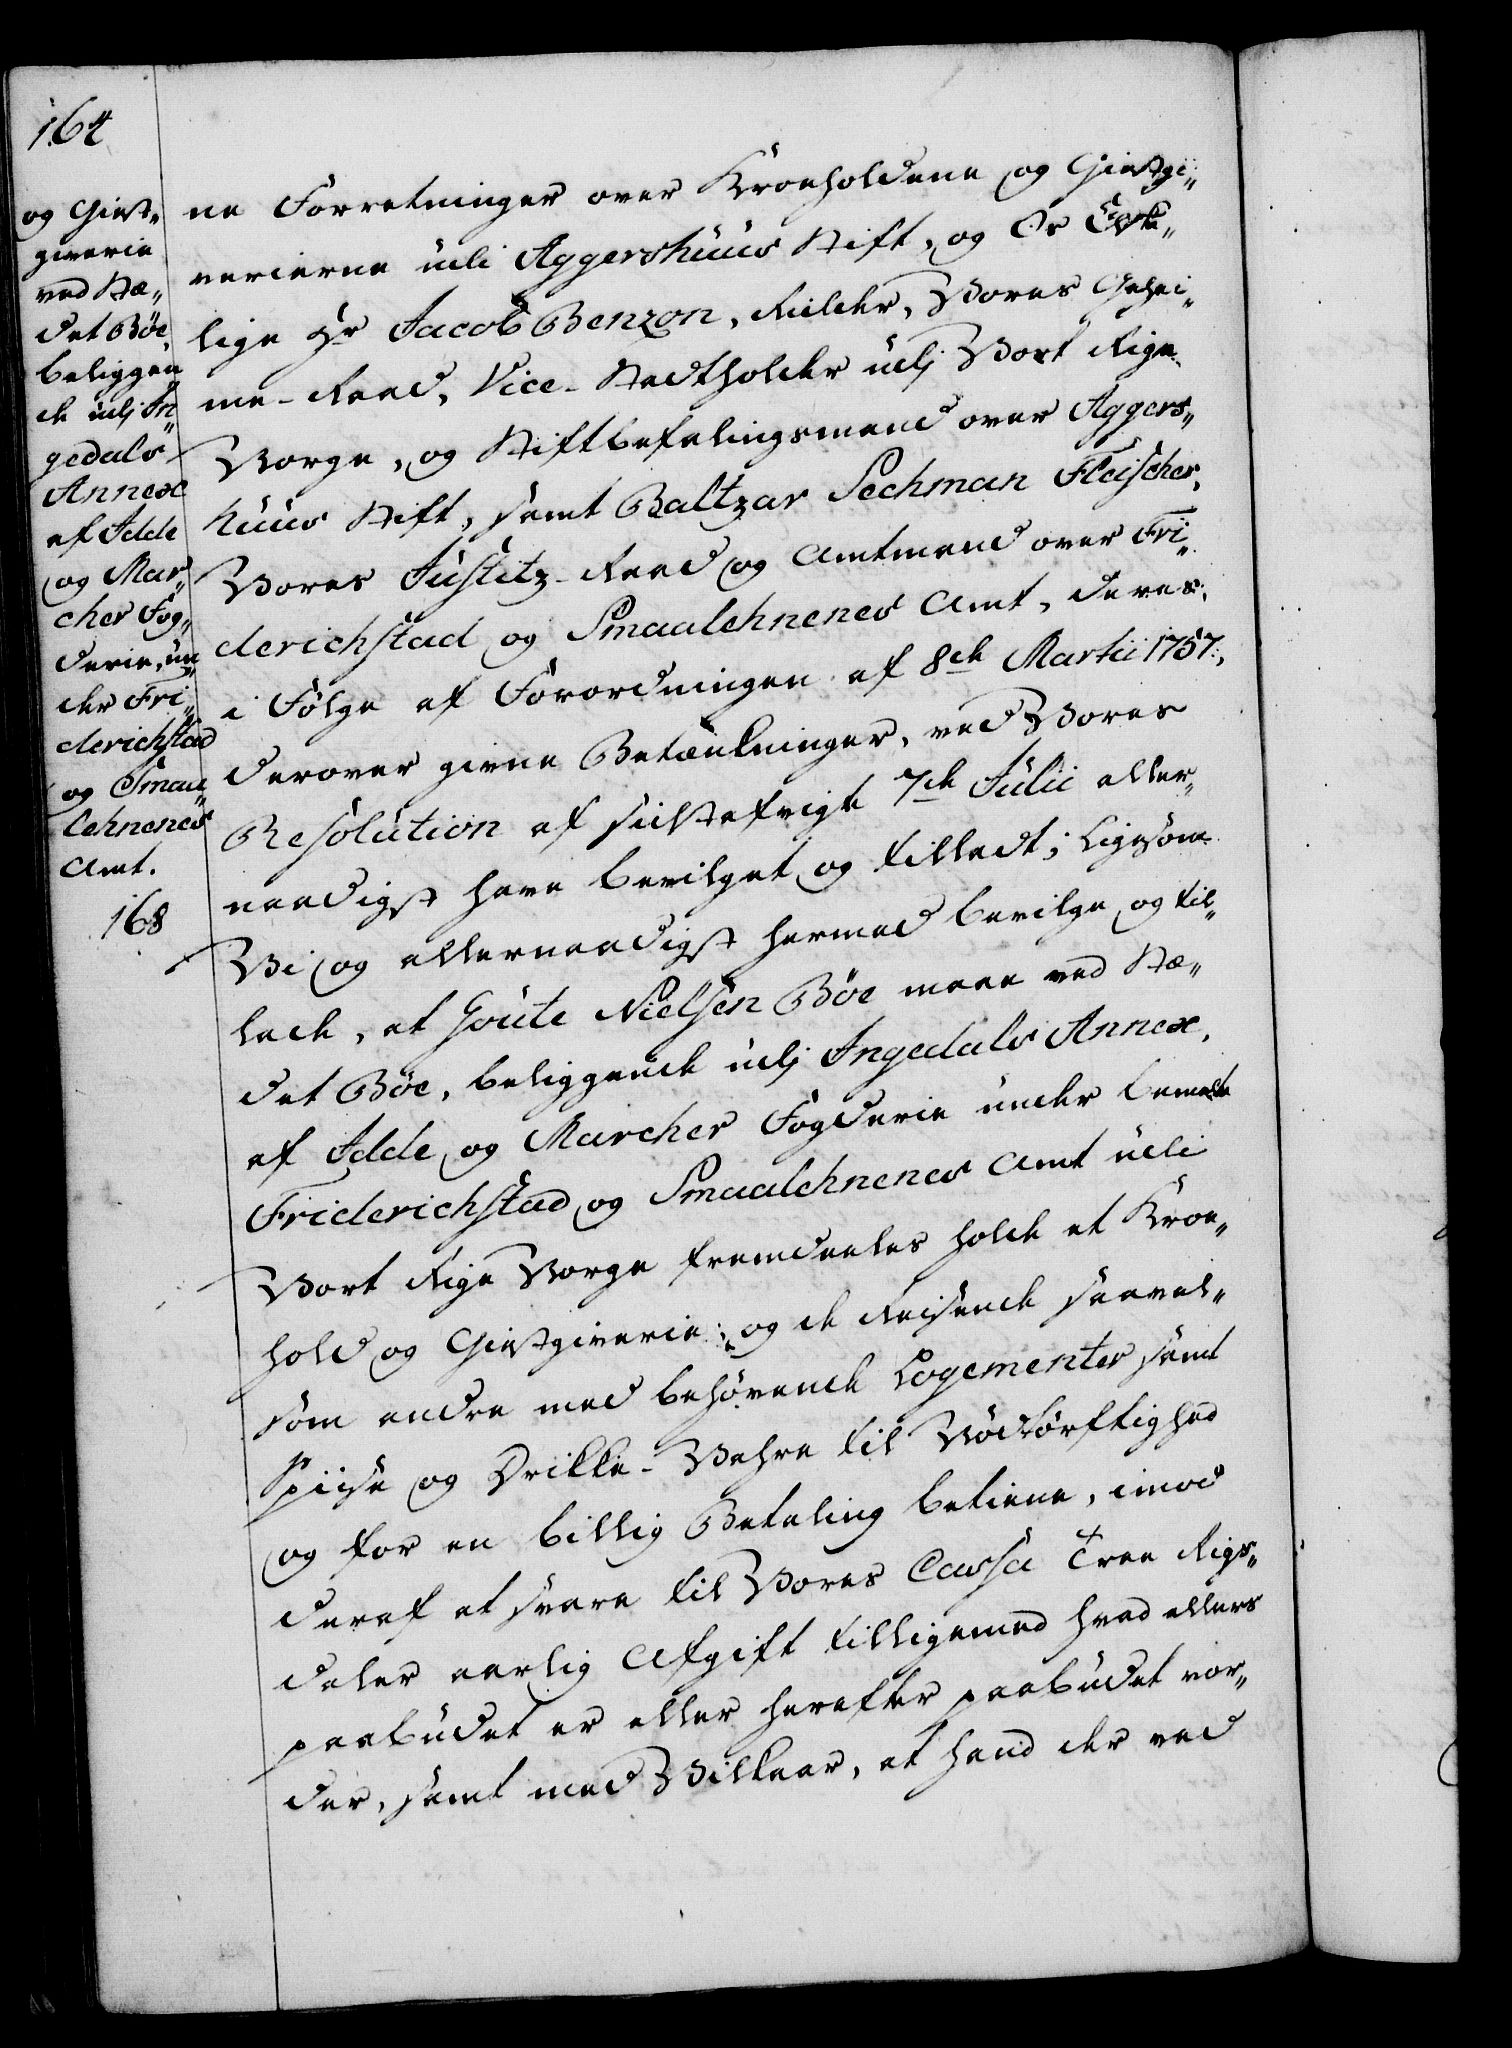 164
og Giest-
giverie
ved Stæ-
det Böe,
beliggen
de udj In
gedals
Annex
af Idde
og Mar-
cher Fog-
derie, un
der Fri-
derichstad
og Smaa-
lehnenes
Amt.
168
ne Forretninger over Kroeholdene og Giestgi-
verierne udi Aggershuus Stift, og Os
lige Hr Jacob Benzon, Ridder, Vores Gehei-
me-Raad, Vice-Stadtholder udj Vort Rige
Norge, og Stiftbefalingsmand over Aggers-
huus Stift, samt Baltzar Sechman Fleischer,
Vores Justitz-Raad og Amtmand over Fri-
derichstad og Smaalehnenes Amt, deres,
i Følge af Forordningen af 8de Martii 1757,
derover givne Betænkninger, ved Vores
Resolution af sidstafvigte 7de Julii aller-
naadigst have bevilget og tilladt; Ligesom
Vi og allernaadigst hermed bevilge og til-
lade, at Goute Nielsen Böe maae ved Stæ-
det Böe, beliggende udj Ingedals Annex,
af Idde og Marcher Fogderie under bemelte
Friderichstad og Smaalehnenes Amt udi
Vort Rige Norge fremdeeles holde et Kroe-
hold og Giestgiverie; og de Reisende saavel-
som andre med behøvende Logementer samt
Spiise og Drikke-Vahre til Nødtørftighed
og for en billig Betaling betiene, imod
deraf at svare til Vores Cassa Tree Rigs-
daler aarlig Afgift tilligemed hvad ellers
paabudet er eller herefter paabudet vor-
der, samt med Vilkaar, at hand der ved